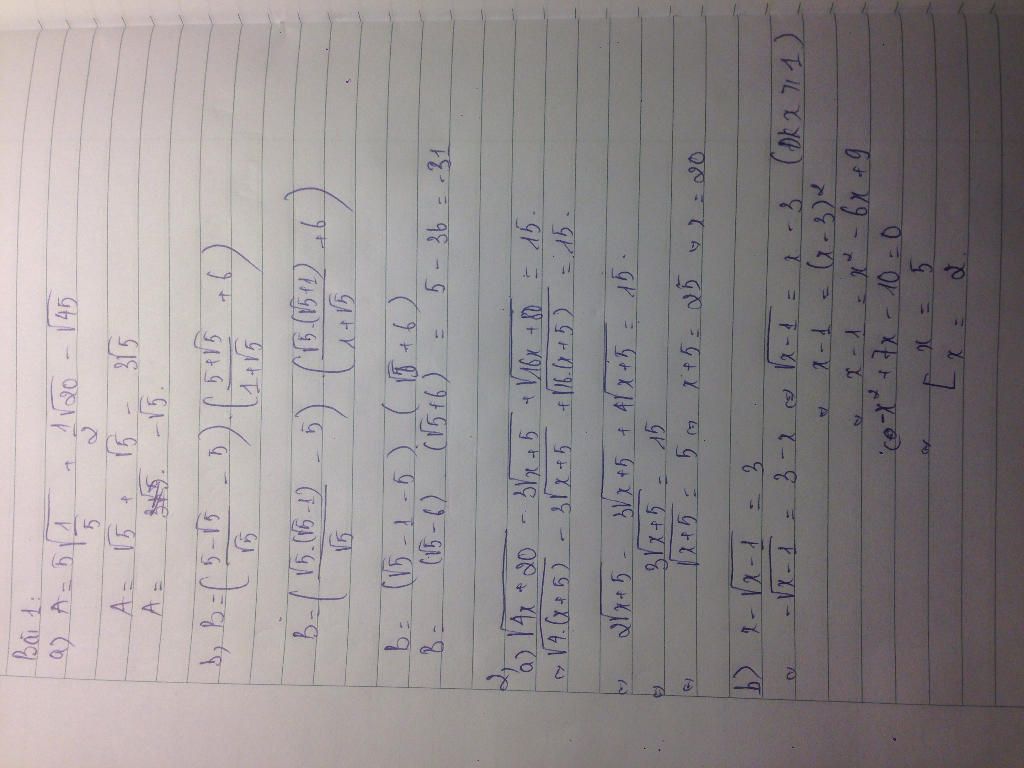 Bài 1:
a) A = 5√(1/5) + 1/2 √20 - √45
A = √5 + √5 - 3√5
A = -√5.
b) B = ((5-√5)/√5 - 5) . ((5+√5)/(1+√5) + 6)
B = (√5.(√5-1)/√5 - 5) (√5.(√5+1)/(1+√5) + 6)
B = (√5 - 1 - 5) (√5 + 6)
B = (√5-6) . (√5+6) = 5 - 36 = -31
2)
a) √(4x+20) - 3√(x+5) + √(16x+80) = 15.
⇔ √(4.(x+5)) - 3√(x+5) + √(16.(x+5)) = 15.
⇔ 2√(x+5) - 3√(x+5) + 4√(x+5) = 15.
⇔ 3√(x+5) = 15
⇔ √(x+5) = 5 ⇔ x+5 = 25 ⇔ x = 20
b) x - √(x-1) = 3
⇔ -√(x-1) = 3 - x ⇔ √(x-1) = x - 3 (Đk x ≥ 1)
⇔ x-1 = (x-3)²
⇔ x-1 = x² - 6x + 9
⇔ -x² + 7x - 10 = 0
⇔ [ x = 5
x = 2